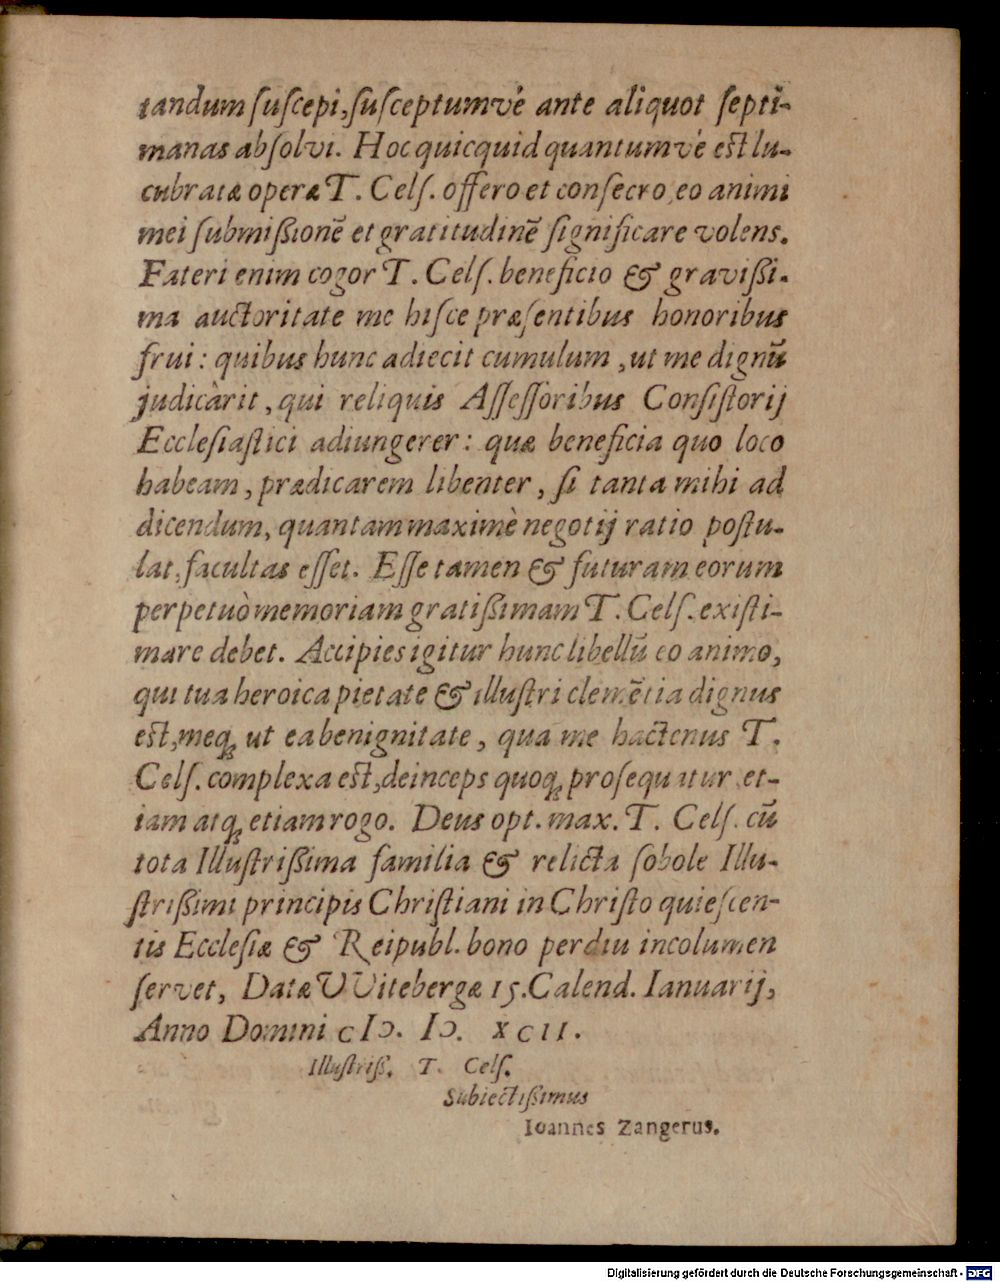 tandum ſuſcepi, ſuſceptumvé ante aliquot ſepti-
manas abſolvi. Hoc quicquid quantumvé eſt lu-
cubratæ operæ T. Celſ. offero et conſecro, eo animi
mei ſubmißionẽ et gratitudinẽ ſignificare volens.
Fateri enim cogor T. Celſ. beneficio & gravißi-
ma auctoritate me hiſce præſentibus honoribus
frui: quibus hunc adiecit cumulum, ut me dignũ
judicârit, qui reliquis Aſſeſſoribus Conſiſtorij
Eccleſiaſtici adiungerer: quæ beneficia quo loco
habeam, prædicarem libenter, ſi tanta mihi ad
dicendum, quantam maximè negotij ratio poſtu-
lat, facultas eſſet. Eſſe tamen & futuram eorum
perpetuò memoriam gratißimam T. Celſ. exiſti-
mare debet. Accipies igitur hunc libellũ eo animo,
qui tua heroica pietate & illuſtri clemẽtia dignus
eſt, meq; ut ea benignitate, qua me hactenus T.
Celſ. complexa eſt, deinceps quoq; proſequatur et-
iam atq; etiam rogo. Deus opt. max. T. Celſ. cũ
tota Illuſtrißima familia & relicta ſobole Illu-
ſtrißimi principis Chriſtiani in Chriſto quieſcen-
tis Eccleſiæ & Reipubl. bono perdiu incolumen
ſervet, Datæ VVitebergæ 15. Calend. Ianuarij,
Anno Domini cIↃ. IↃ. XCII.
Illuſtriß. T. Celſ.
Subiectißimus
Ioannes Zangerus.
Digitalisierung gefördert durch die Deutsche Forschungsgemeinschaft - DFG